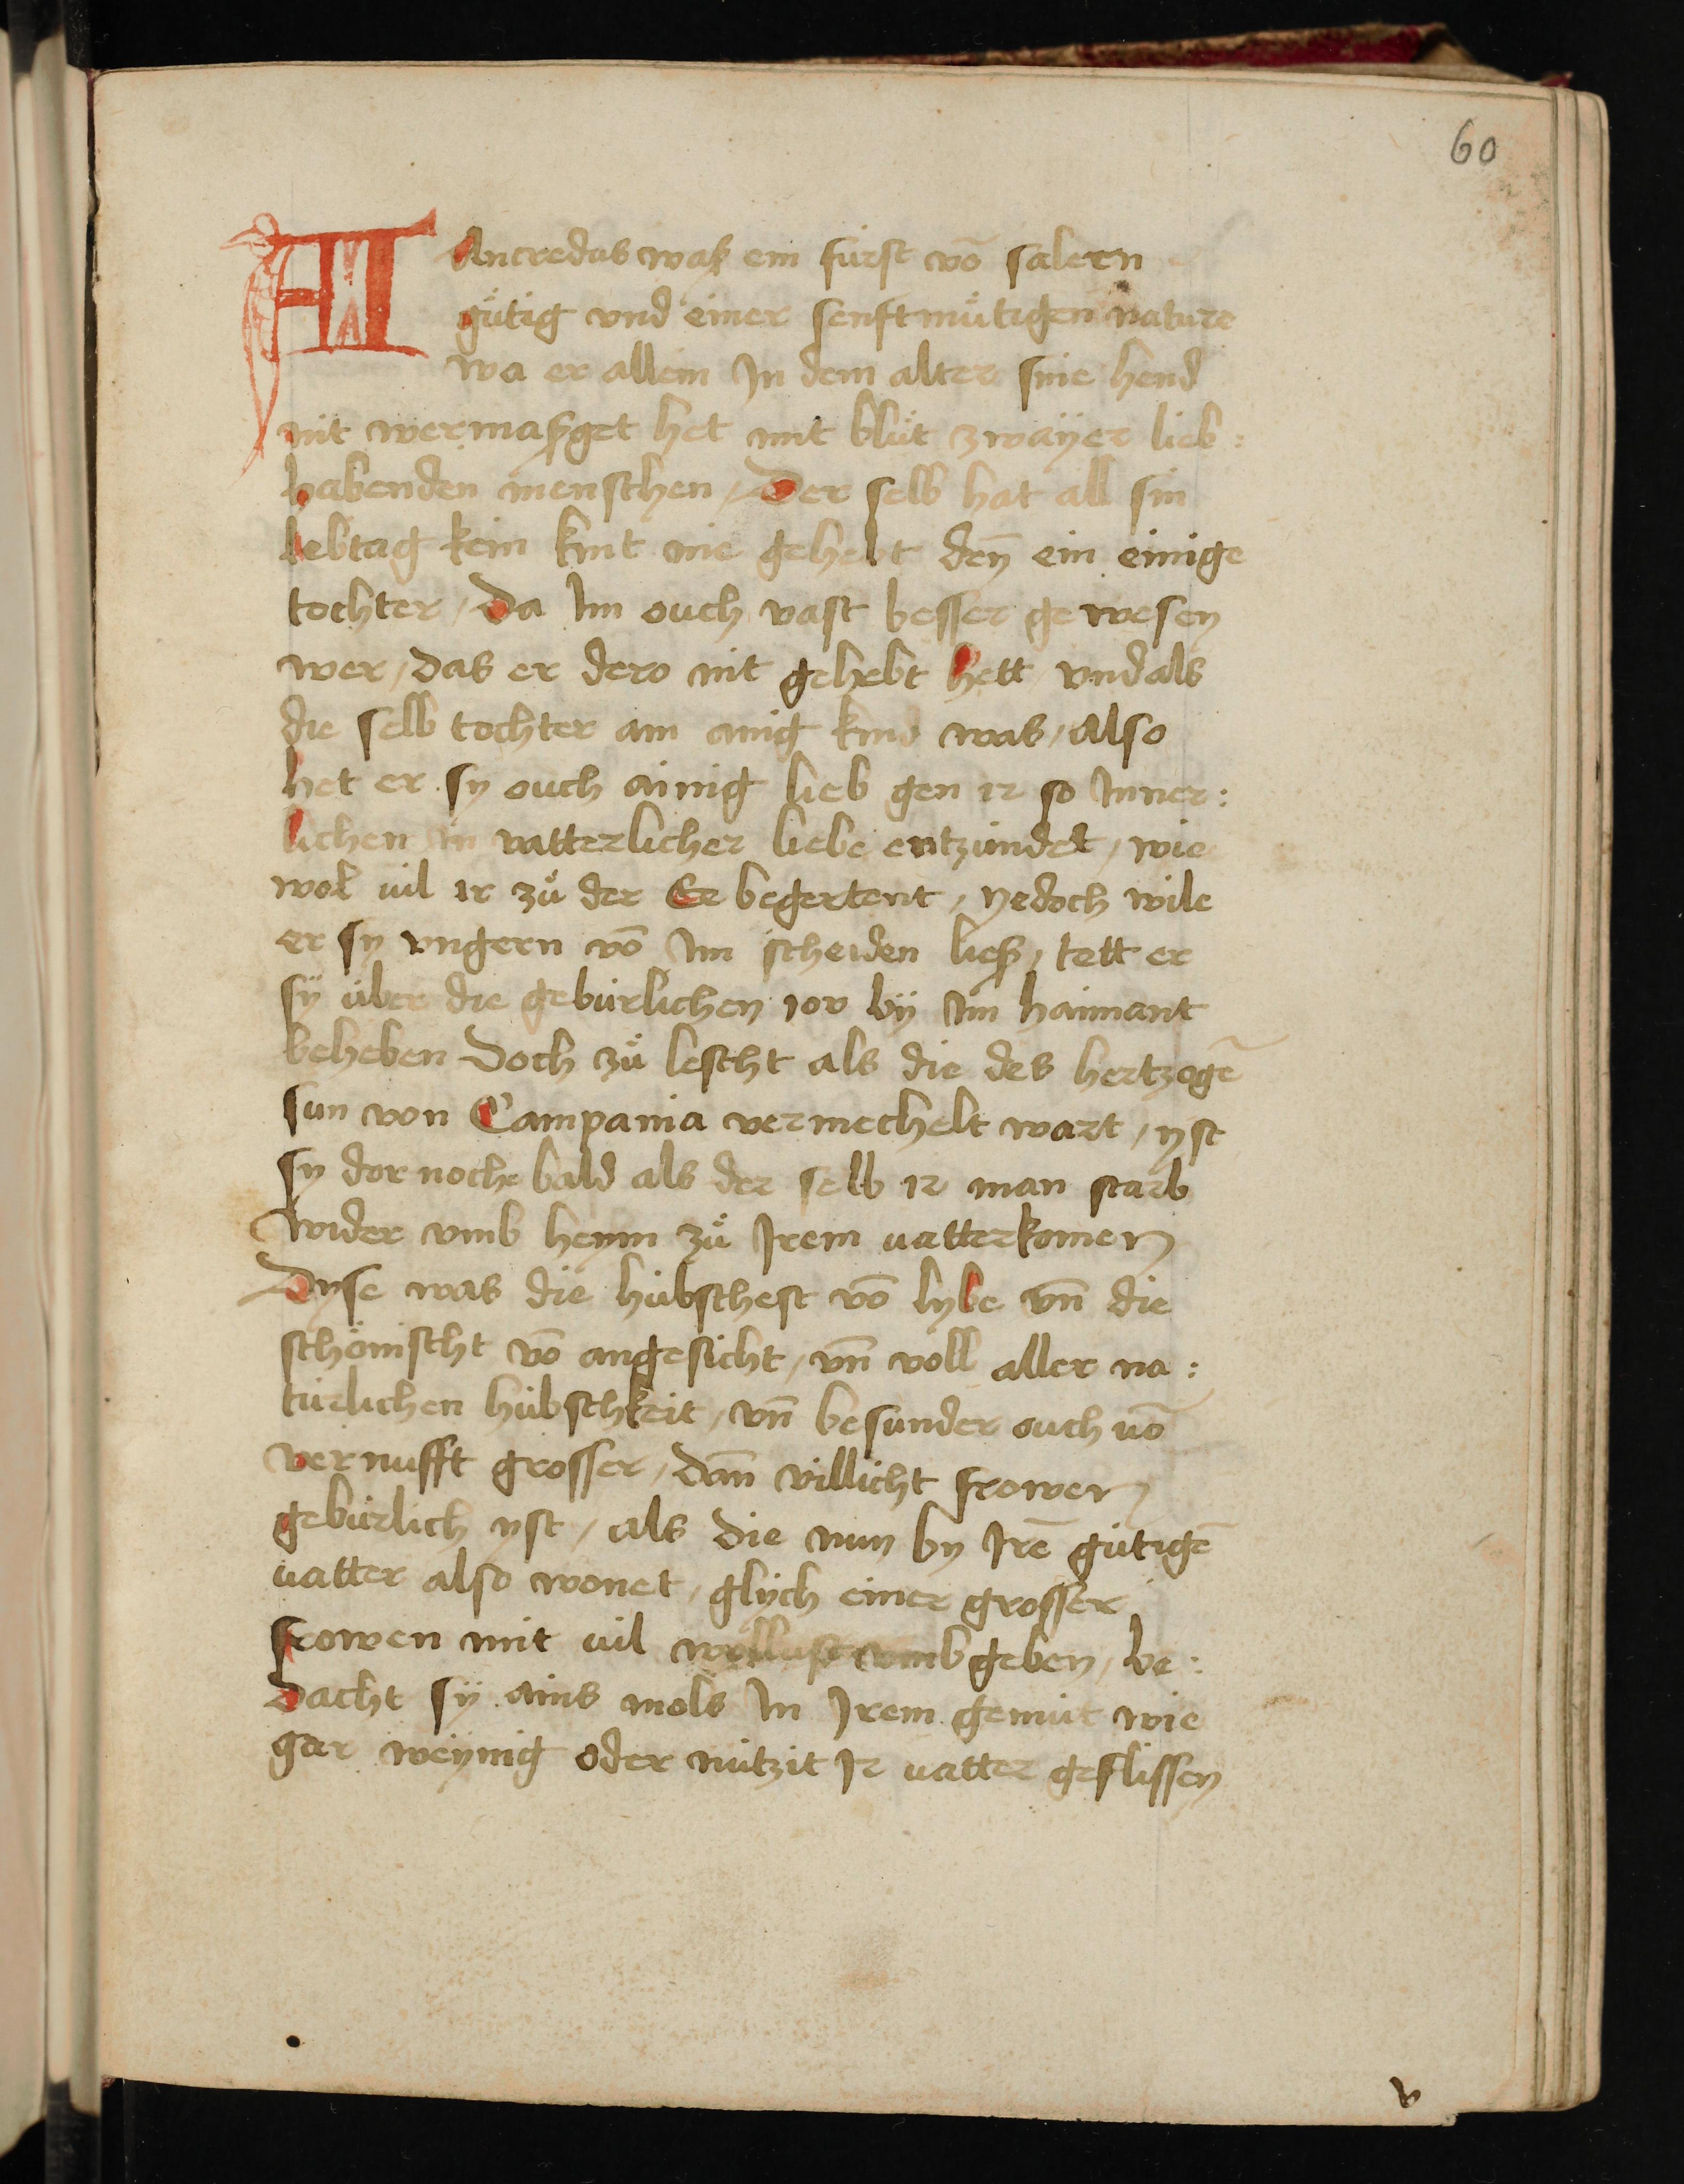 60
TAncredus waß ein fürst vō salern
gůtig vnd einer senftmůtigen nature
wa er allein In dem alter sine hend
nit wermaßget het mit blůt zwaÿer lieb:
habenden menschen / Der selb hat all sin
lebtag kein kint nie gehebt den̄ ein einige
tochter / Da Im ouch vast besser gewesen
wer / das er dero nit gehebt hett vnd als
die selb tochter ain ainig kind was / also
het er sy ouch ainig lieb gen ir so Inner:
lichen in vatterlicher liebe entzündet / wie
wol uil ir zů der Ee begertent / yedoch wile
er sy vngern vō Im scheiden ließ / tett er
sÿ über die gebürlichen ior bÿ Im haimant
beheben Doch zů lescht als die des hertzogē
sun von Campania vermechelt wart / yst
sy dor noche bald als der selb ir man starb
wider vmb heym zů Irem uatter komen
Dyse was die hübschest vō lybe vn̄ die
schönischt vō angesicht / vn̄ voll aller na:
türlichen hübschkeit / vn̄ besunder ouch uō
vernufft grosser / dan̄ villicht frowen
gebürlich yst / als die nun by Irē gütigē
uatter also wonet / glÿch einer grosser
frowen mit uil wollust vmb geben / be:
dacht sÿ ains mols In Irem gemüt wie
gar weÿnig oder nützit Ir uatter geflissen
v